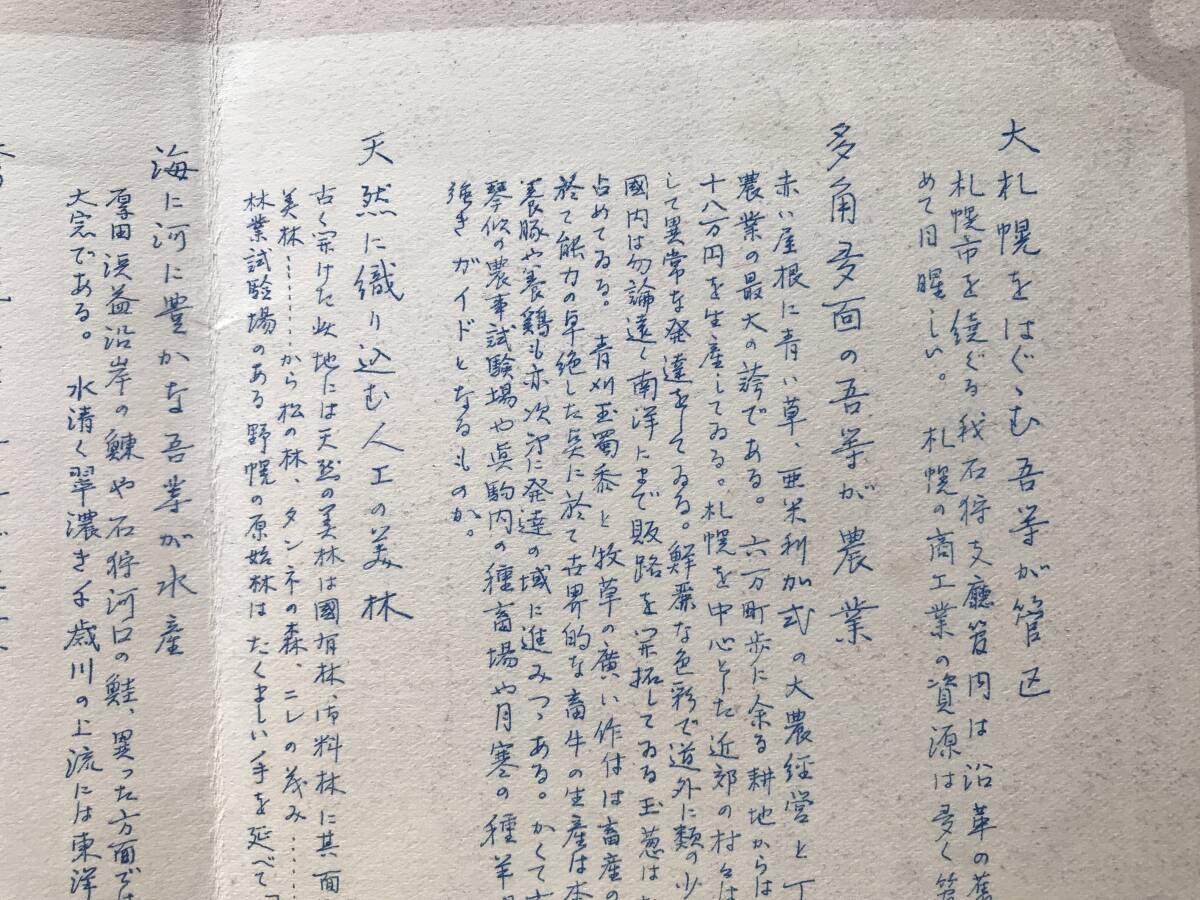 大札幌をはぐゝむ吾等が管区
札幌市を繞ぐる我石狩支廳管内は沿革の舊
めて目醒しい。 札幌の商工業の資源は多く管
多角多面の吾等が農業
赤い屋根に青い草、亜米利加式の大農経営と丁
農業の最大の誇である。六万町歩に余る耕地からは
十八万円を生産してゐる。札幌を中心とした近郊の村々は
して異常な発達をしてゐる。鮮麗な色彩で道外に類の少
國内は勿論遠く南洋にまで販路を開拓してゐる玉葱は
占めてゐる。 青刈玉蜀黍と牧草の廣い作付は畜産の
於て能力の卓絶した点に於て世界的な畜牛の生産は本
養豚や養鶏も亦次第に発達の域に進みつゝある。かくて
琴似の農事試験場や真駒内の種畜場や月寒の種羊
強きガイドとなるものか。
天然に織り込む人工の美林
古く開けた此地には天然の美林は國有林、御料林に其面
美林………から松の林、タンネの森、ニレの茂み……
林業試験場のある野幌の原始林はたくましい手を延べて「
海に河に豊かな吾等が水産
厚田浜益沿岸の鰊や石狩河口の鮭、異った方面では
大宗である。 水清く翠濃き千歳川の上流には東洋